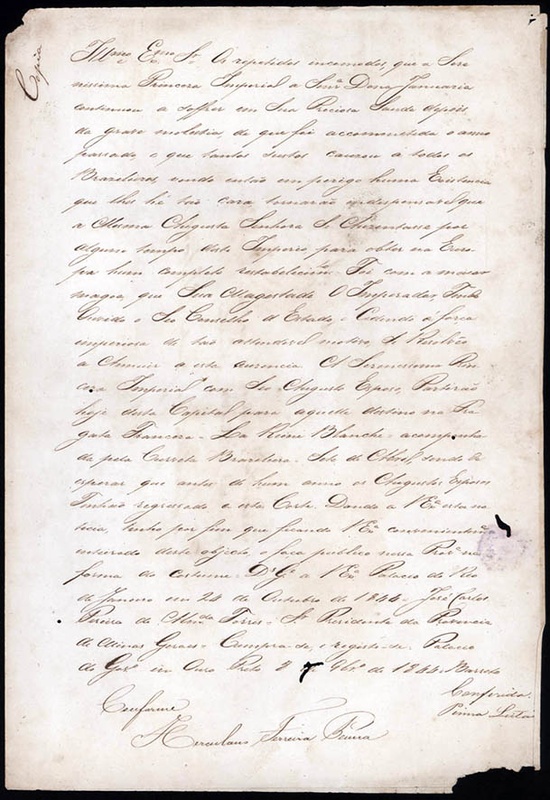 Copia
Illmo e Exmo Sr. Os repetidos incomodos, que a Sere
nissima Princeza Imperial a Snra Dona Januaria
continuou a soffrer em Sua Preciosa Saude depois
da grave molestia, de que foi accommettida o anno
passado, e que tantos sustos causou á todos os
Brasileiros vendo então em perigo huma Existencia
que lhes hé tão cara tornarão indispensavel que
a Mesma Augusta Senhora Se Auzentasse por
algum tempo deste Imperio, para obter na Euro
pa hum completo restabelecimto Foi com a maior
magoa, que Sua Magestade O Imperador, Tendo
Ouvido o Seo Conselho d'Estado, e Cedendo á força
imperiosa de tão attendivel motivo, Se Resolveo
a Annuir a esta ausencia. A Serenissima Prin
ceza Imperial com Seo Augusto Esposo, Partirão
hoje desta Capital para aquelle destino na Fra
gata Franceza - La Reine Blanche - acompanha
da pela Corveta Brasileira - Sete de Abril, sendo de
esperar que antes de hum anno os Augustos Esposos
Tenhão regressado a esta Corte. Dando a V Exa esta no
ticia, tenho por fim que ficando V Exa convenientemte
inteirado deste objecto o faça publico nessa Prova na
forma do costume. Ds Ge a V Exa Palacio do Rio
de Janeiro em 24 de Outubro de 1844 - José Carlos
Pereira de Almda Torres - Sr Presidente da Provincia
de Minas Geraes - Cumpra-se, e registe-se. Palacio
do Govo em Ouro Preto de 9bro de 1844. Barreto
Conferida
Conforme
Herculano Ferreira Penna